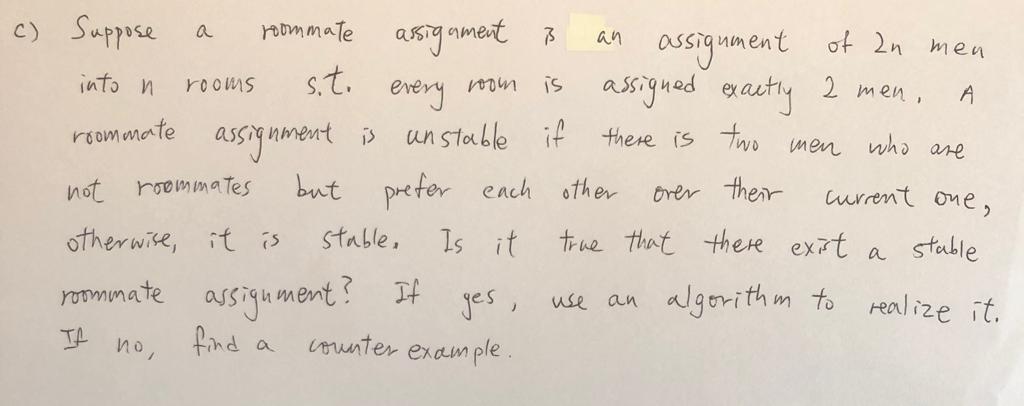 c) Suppose a roommate assignment is an assignment of 2n men
into n rooms s.t. every room is assigned exactly 2 men. A
roommate assignment is unstable if there is two men who are
not roommates but prefer each other over their current one,
otherwise, it is stable. Is it true that there exist a stable
roommate assignment? If yes, use an algorithm to realize it.
If no, find a counter example.